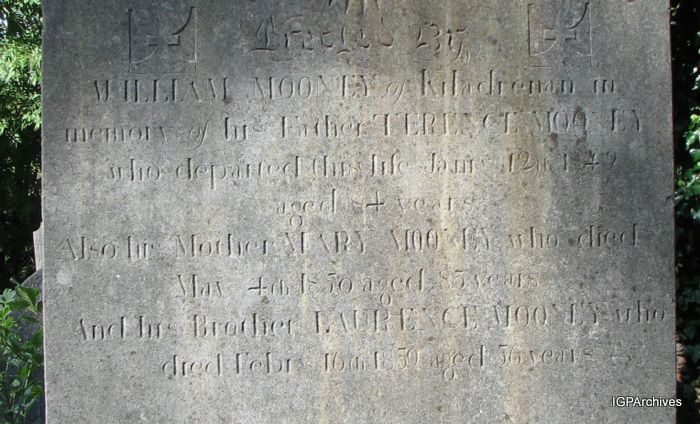 Erected By
WILLIAM MOONEY of Kiladrenan in
memory of his Father TERENCE MOONEY
who departed this life Jany 12th 1849
aged 84 years
Also his Mother MARY MOONEY who died
May 4th 1850 aged 83 years
And his Brother LAURENCE MOONEY who
died Febry 16th 1859 aged 56 years
IGPArchives